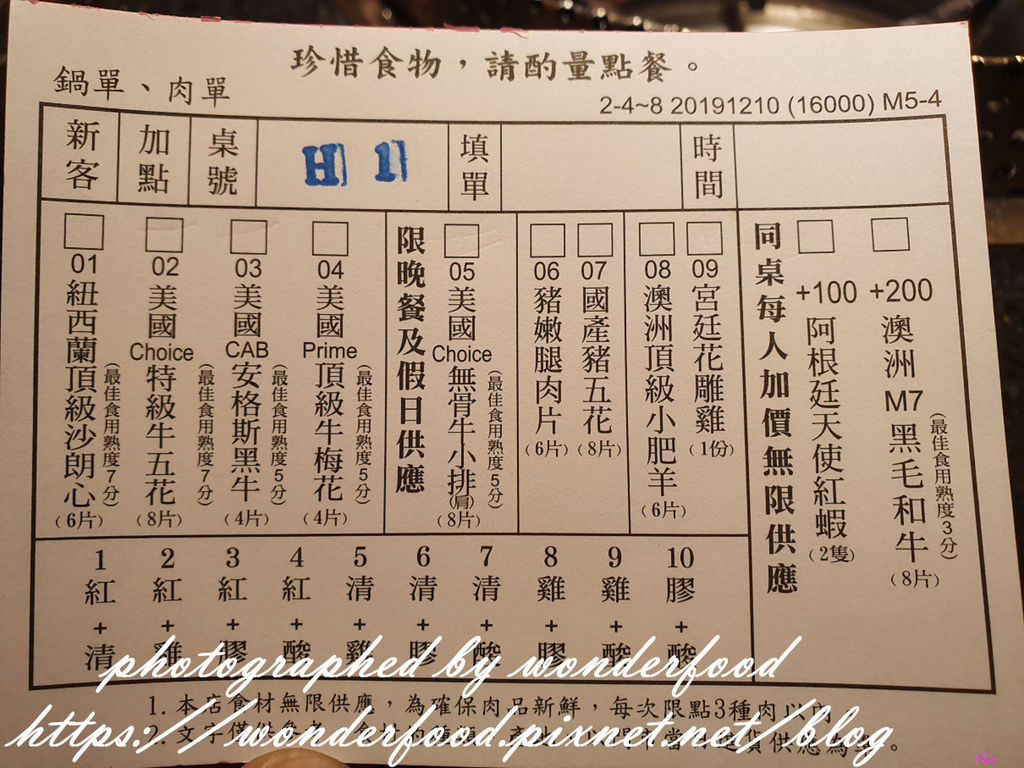 珍惜食物，請酌量點餐。
鍋單、肉單
2-4~8 20191210 (16000) M5-4
新客
加點
桌號
H 1
填單
時間
01紐西蘭頂級沙朗心(6片)
(最佳食用熟度7分)
02美國Choice特級牛五花(8片)
(最佳食用熟度7分)
03美國CAB安格斯黑牛(4片)
(最佳食用熟度5分)
04美國Prime頂級牛梅花(4片)
(最佳食用熟度5分)
限晚餐及假日供應
05美國Choice無骨牛小排(肩)(8片)
(最佳食用熟度5分)
06豬嫩腿肉片(6片)
07國產豬五花(8片)
08澳洲頂級小肥羊(6片)
09宮廷花雕雞(1份)
同桌每人加價無限供應
+100阿根廷天使紅蝦(2隻)
+200澳洲M7黑毛和牛(8片)
(最佳食用熟度3分)
1 2 3 4 5 6 7 8 9 10
紅 紅 紅 紅 清 清 清 雞 雞 膠
+ + + + + + + + + +
清 雞 膠 酸 雞 膠 酸 膠 酸 酸
photographed by wonderfood
1.本店食材無限供應，為確保肉品新鮮，每次限點3種肉以內
https://wonderfood.pixnet.net/blog